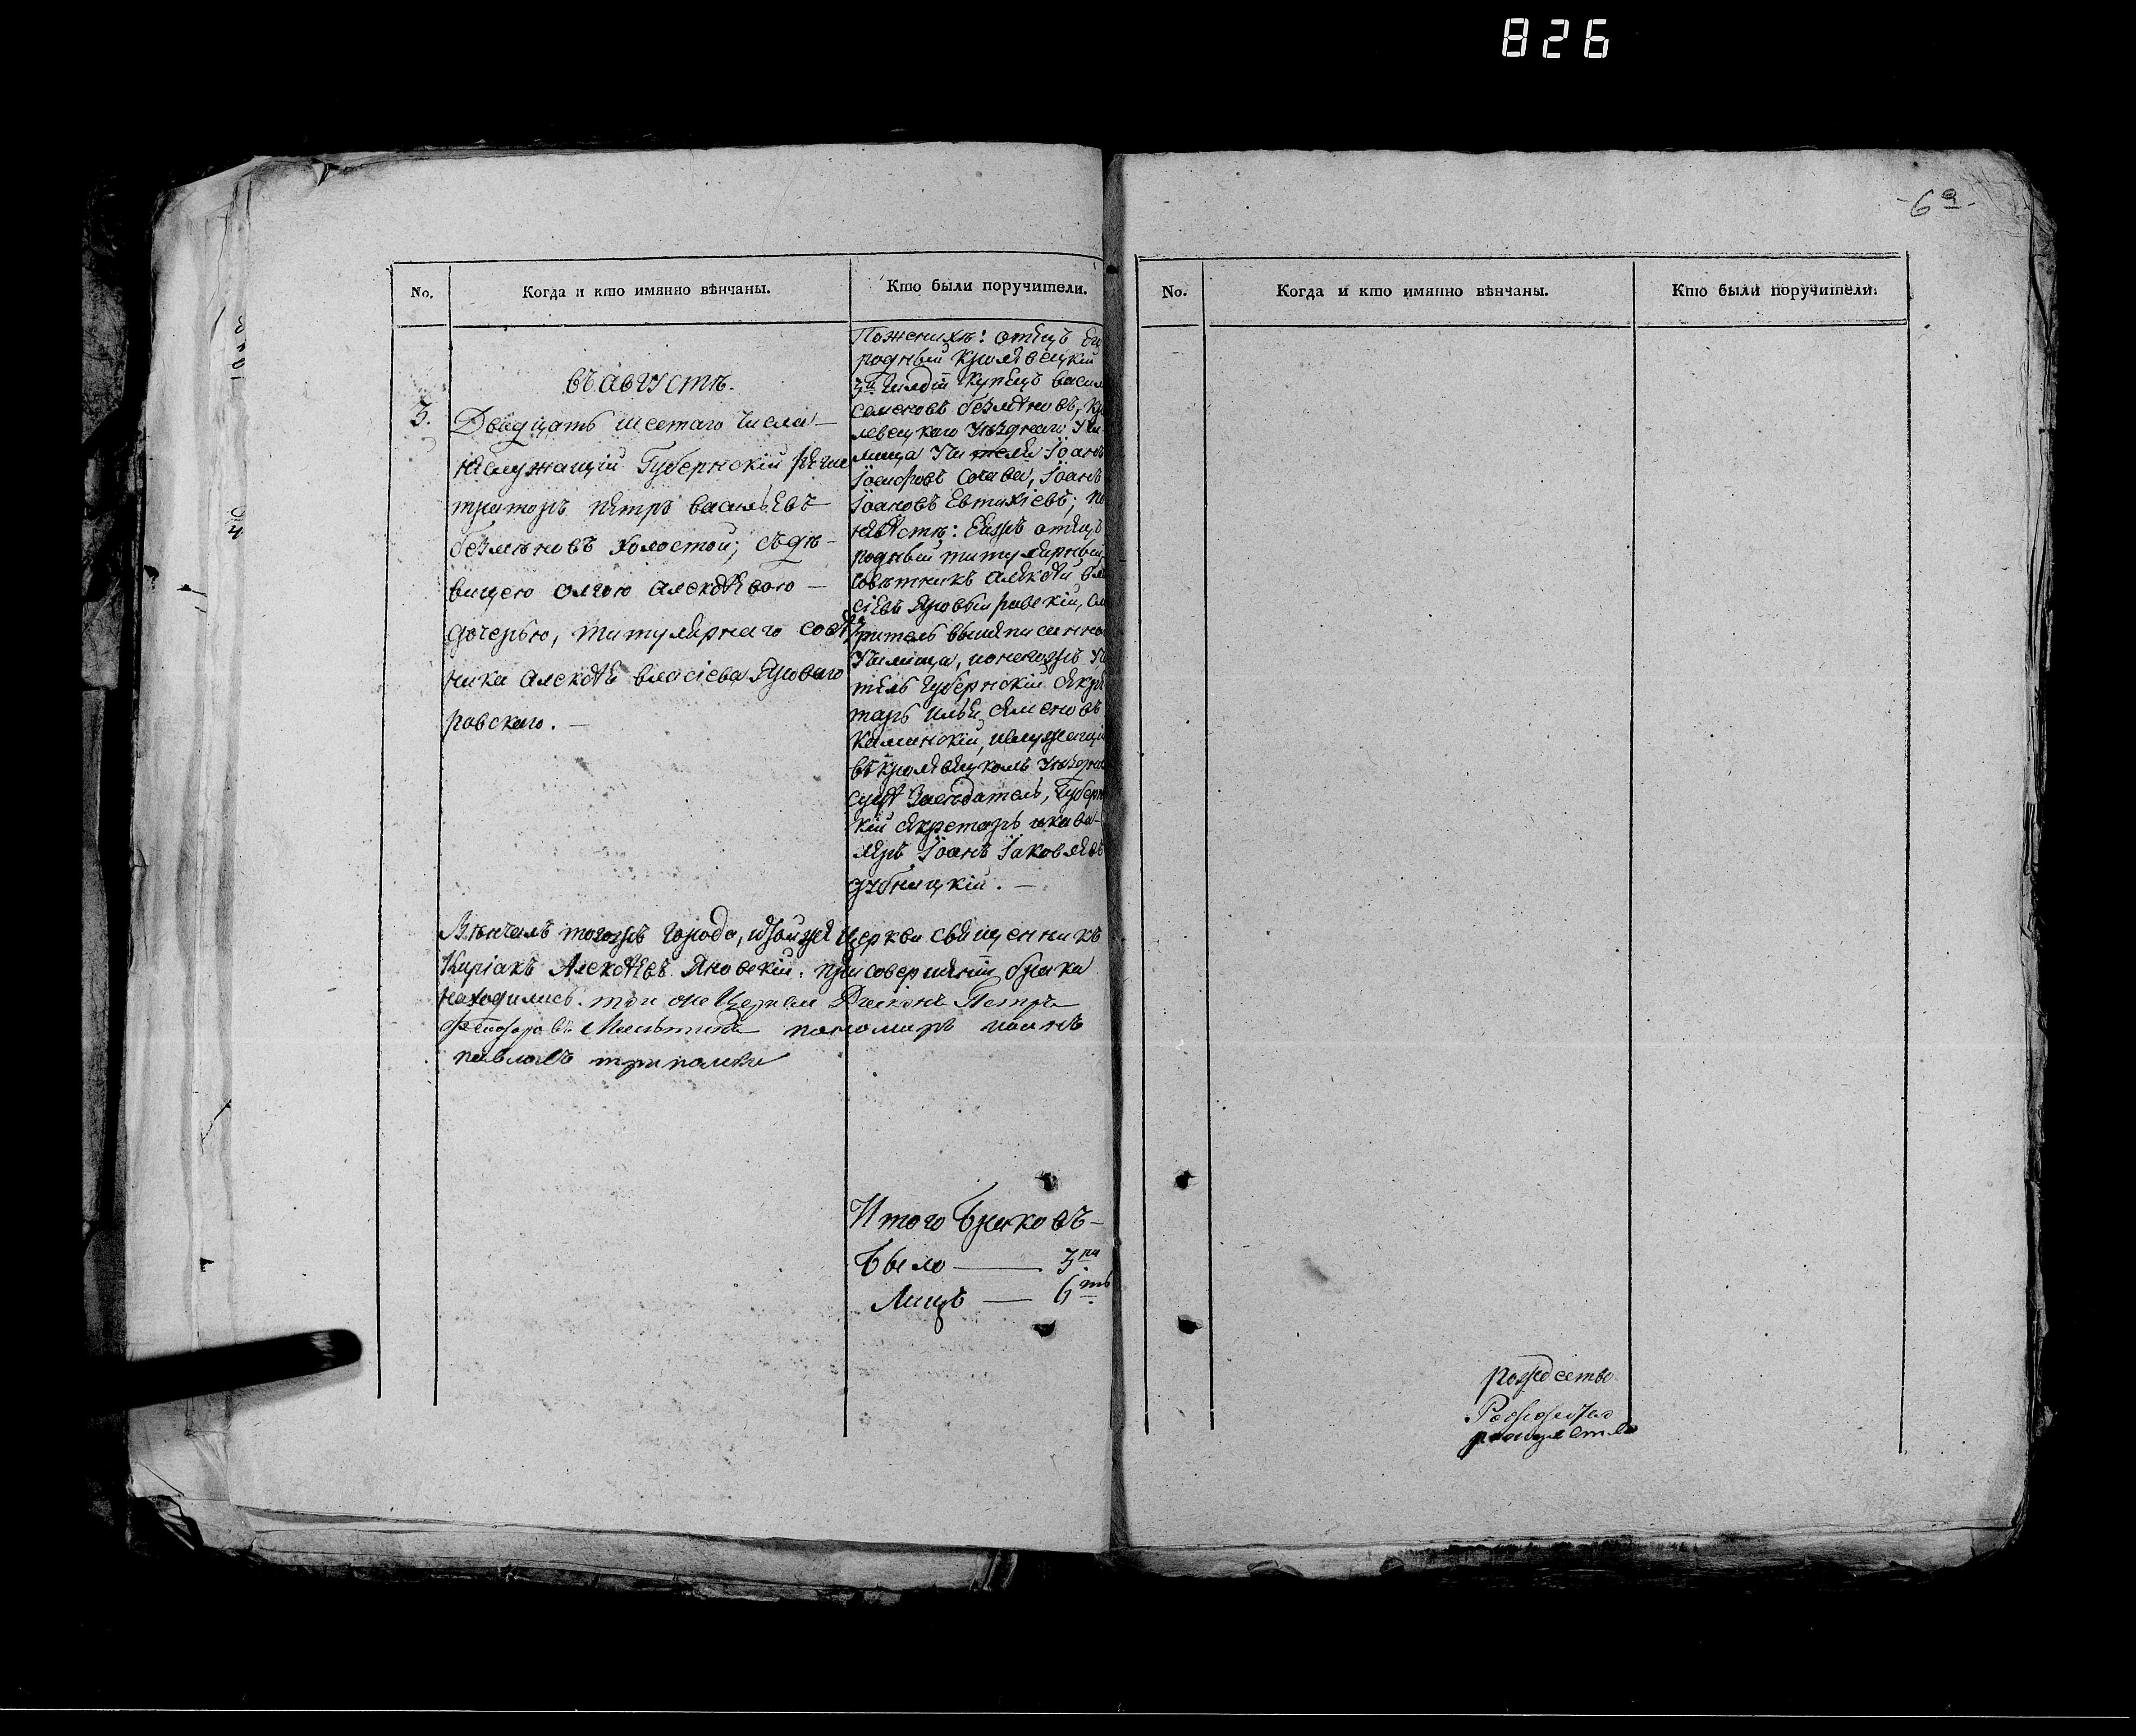 826
6а
No.
Когда и кто имянно вѣнчаны.
Кто были поручители.
въ августѣ.
3.
Двадцать шестаго числа
Губернскій Реги
траторъ Петръ Васильевъ
холостой; съ дѣ-
вицею Алексѣевою
дочерью, титулярнаго совѣт
ника Алексѣя Власіева Яновы
ровскаго.
По женихѣ: отецъ его
родный Кролевецкій
3й гилдіи купецъ Васил
Семеновъ
левецкаго уѣзднаго Учи
лища Учители Іоанъ
Іосифовъ Іоанъ
Іоановъ Евтихіевъ; по
невѣстѣ: еяжъ отецъ
родный титулярный
совѣтникъ Алексѣй Вла
сіевъ См
тритель вышеписанна
Училища, Учи
тель Губернскій Секре
тарь Илья Семеновъ
Каминскій, служащій
въ Кролевецкомъ уѣздно
судѣ Засѣдатель, Губерн
кій Секретарь и кава-
леръ Іоанъ Іаковлевъ
Дубницкій.
Вѣнчалъ тогожъ города, церкви священникъ
Киріакъ Алексѣевъ Яновскій. при совершеніи брака
находились. той же Церкви Діаконъ Петръ
Федоровъ пономаръ Иоанъ
Павловъ
Итого браковъ
было — 3ри
Лицъ — 6ть
No.
Когда и кто имянно вѣнчаны.
Кто были поручители.
рождество